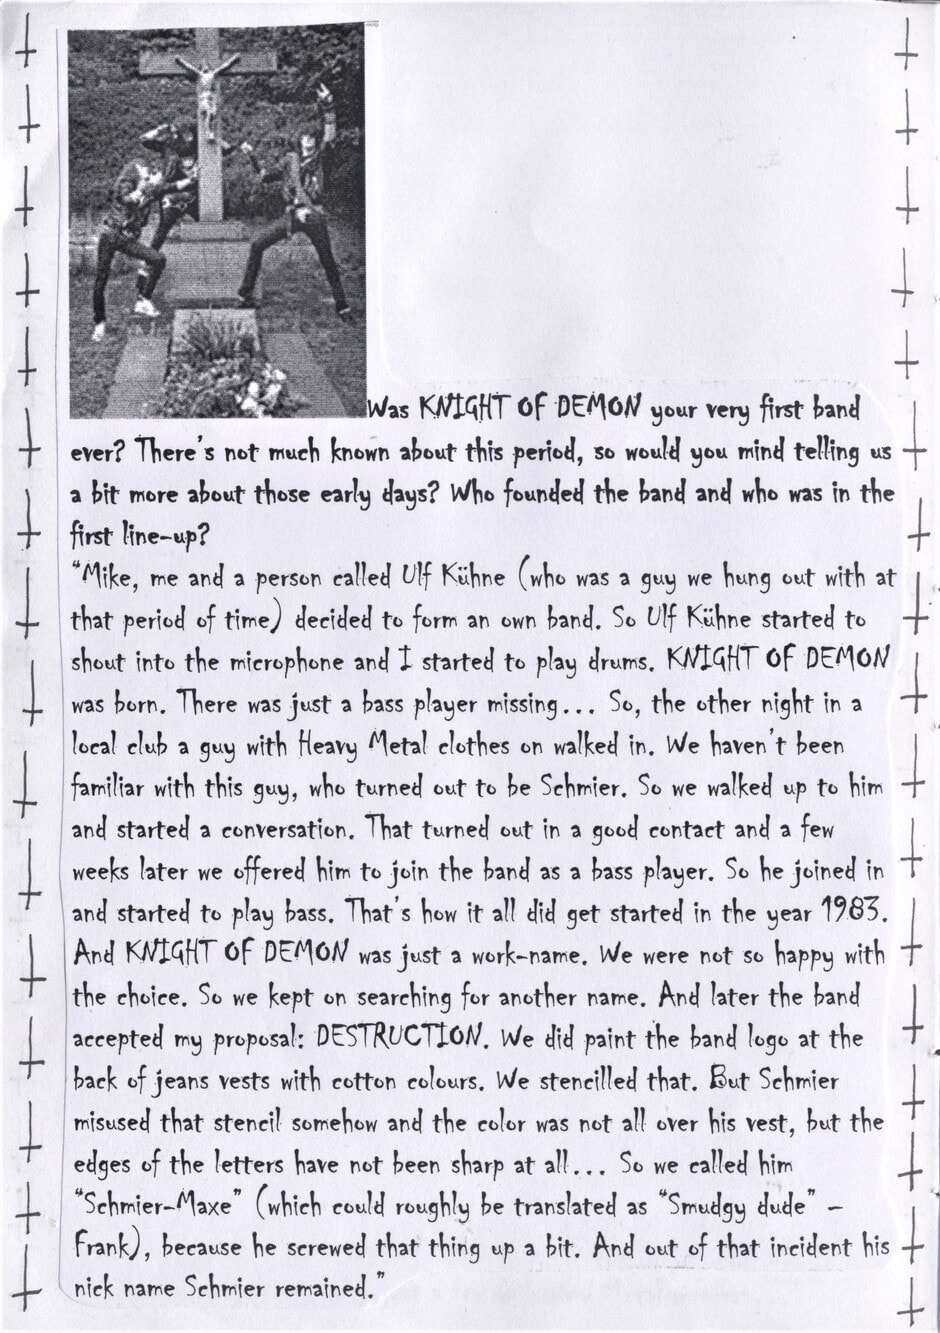 Was KNIGHT OF DEMON your very first band
ever? There's not much known about this period, so would you mind telling us
a bit more about those early days? Who founded the band and who was in the
first line-up?
"Mike, me and a person called Ulf Kühne (who was a guy we hung out with at
that period of time) decided to form an own band. So Ulf Kühne started to
shout into the microphone and I started to play drums. KNIGHT OF DEMON
was born. There was just a bass player missing... So, the other night in a
local club a guy with Heavy Metal clothes on walked in. We haven't been
familiar with this guy, who turned out to be Schmier. So we walked up to him
and started a conversation. That turned out in a good contact and a few
weeks later we offered him to join the band as a bass player. So he joined in
and started to play bass. That's how it all did get started in the year 1983.
And KNIGHT OF DEMON was just a work-name. We were not so happy with
the choice. So we kept on searching for another name. And later the band
accepted my proposal: DESTRUCTION. We did paint the band logo at the
back of jeans vests with cotton colours. We stencilled that. But Schmier
misused that stencil somehow and the color was not all over his vest, but the
edges of the letters have not been sharp at all... So we called him
"Schmier-Maxe" (which could roughly be translated as "Smudgy dude" -
Frank), because he screwed that thing up a bit. And out of that incident his
nick name Schmier remained."